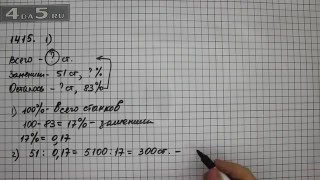 4DA5.RU
1415. 1)
Всего - ? ст.
Заменили - 51 ст, ? %
Осталось - ? ст, 83%
1) 100% - всего станков
100 - 83 = 17% - заменили
17% = 0,17
2) 51 : 0,17 = 5100 : 17 = 300 ст. -